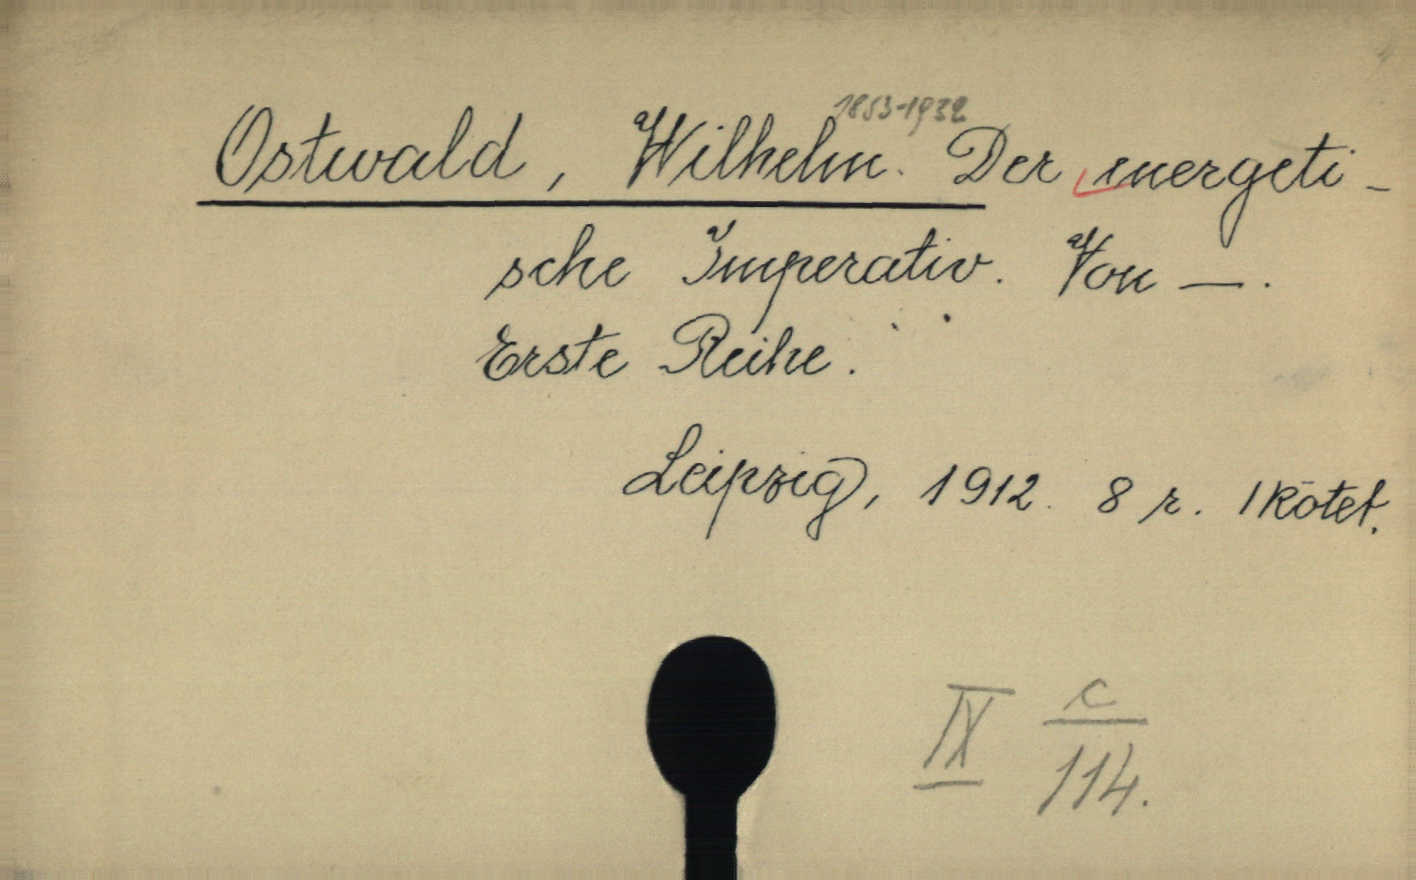 1853-1932
Ostwald, Wilhelm. Der energeti-
sche Imperativ. Von —.
Erste Reihe.
Leipzig, 1912. 8 r. 1 kötet.
IX c
114.